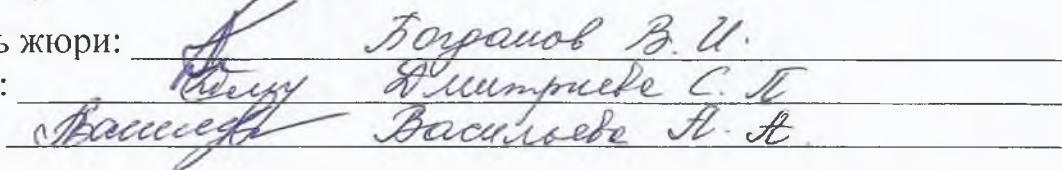 ь жюри: Богданов В. И.
: Дмитриева С. П
Васильева А. А.